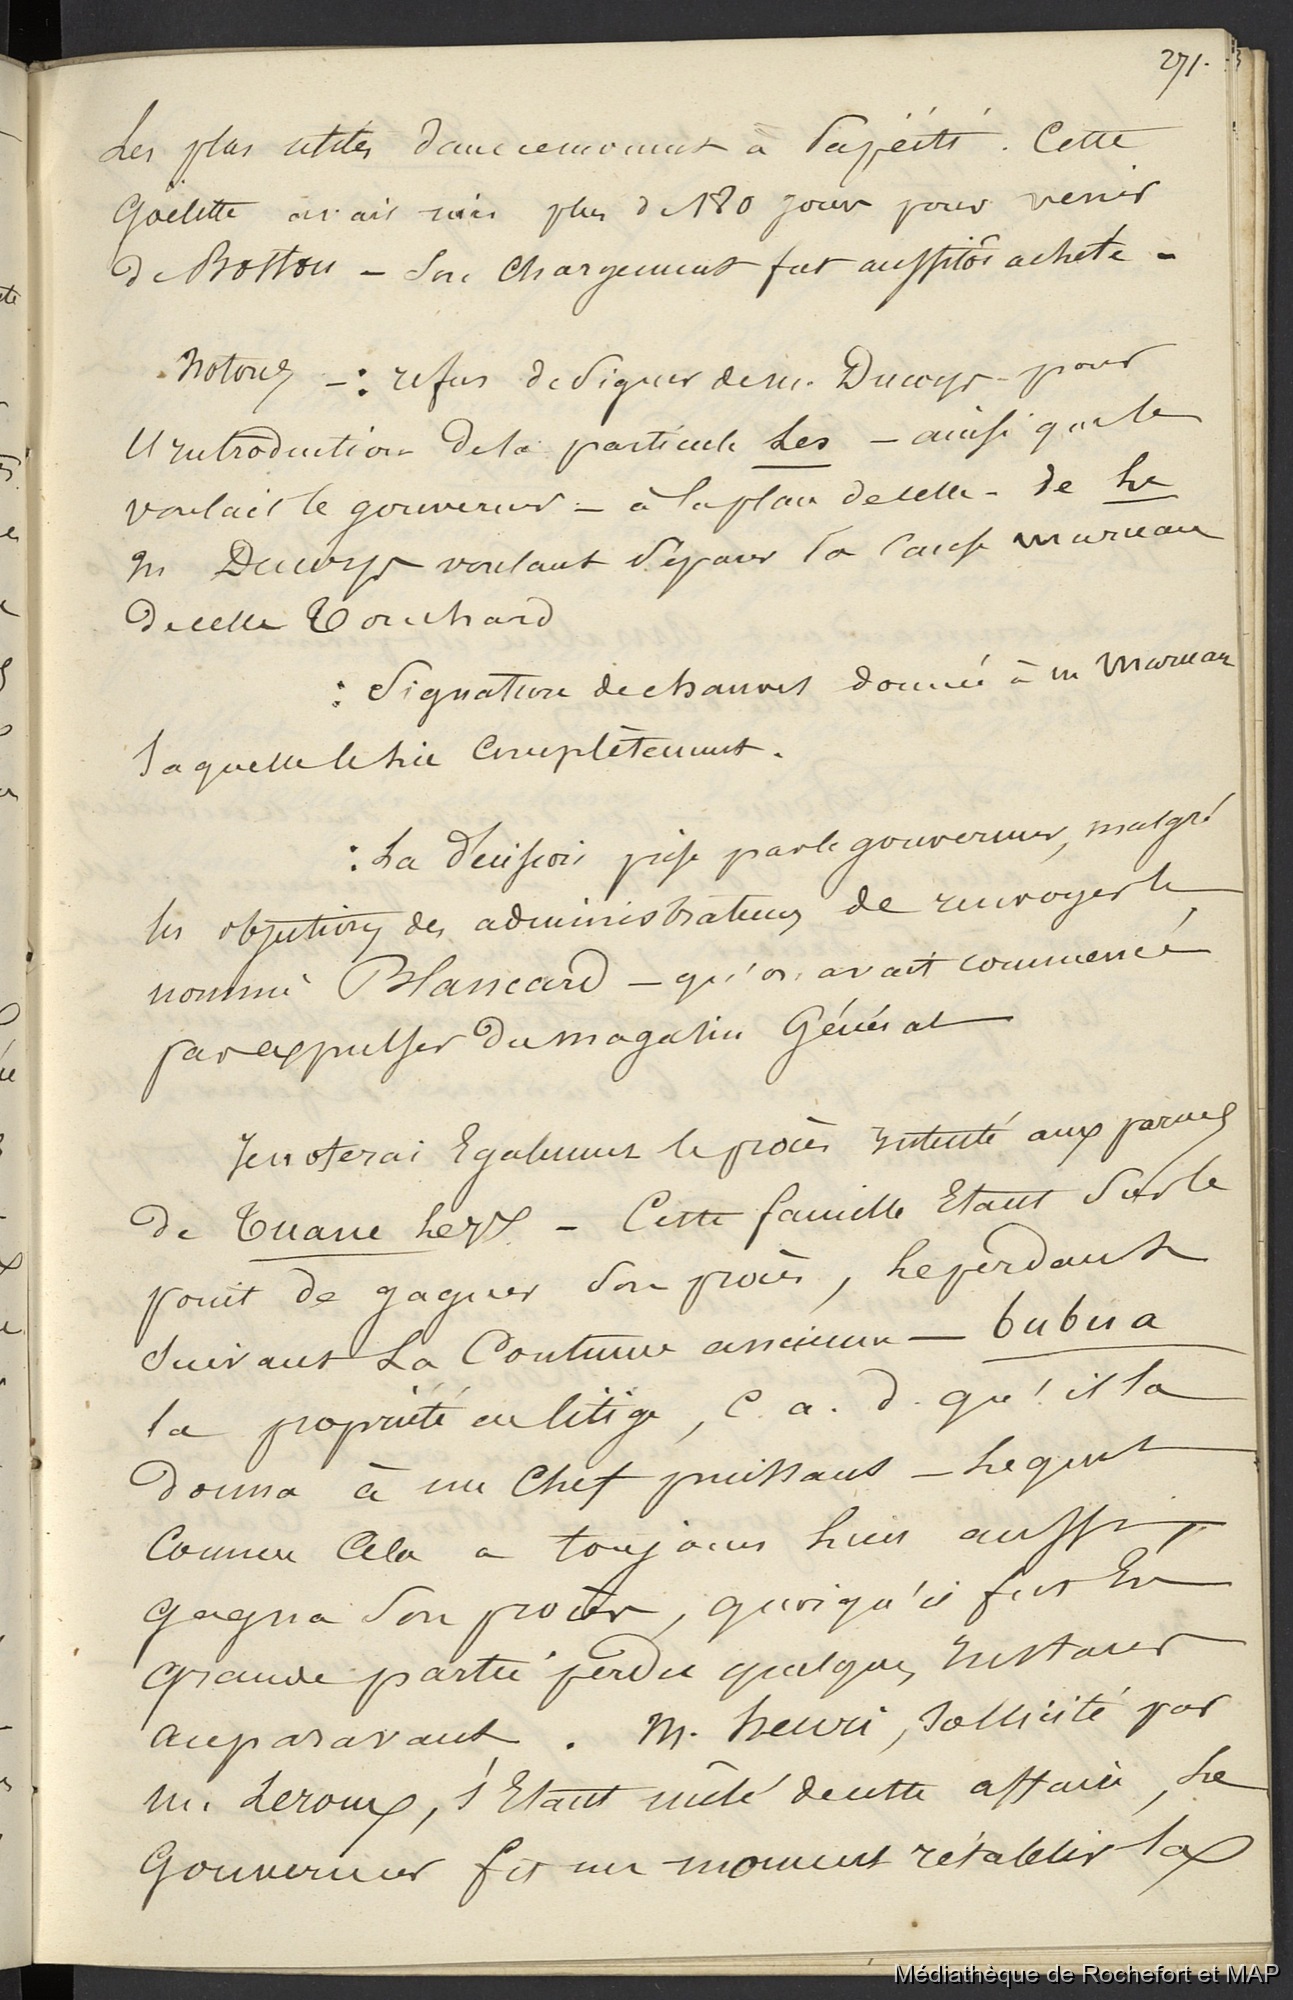 271.
Les plus utiles dans ce moment à Papéiti. Cette
Goëlette avait mis plus de 180 jours pour venir
de Boston – Son Chargement fut aussitôt acheté –
Notons –: refus de signer de m. Ducorps pour
l'introduction de la particule Les – ainsi que le
voulait le gouverneur – à la place de celle – de Le
M Ducorps voulant séparer la cause maruau
de celle Touchard
: Signature de chauvet donnée à m Maruau
laquelle le lie complètement.
: La décision prise par le gouverneur, malgré
les objections des administrateurs de renvoyer le
nommé Blancard – qu'on avait commencé
par expulser du magasin Général
Je noterai Egalement le procès Intenté aux parues
de – Cette famille Etant Sur le
point de gagner Son procès, le perdant
Suivant La Coutume ancienne – bubua
la propriété en litige, c. a. d. qu'il la
donna à un Chef puissant – Lequel
comme Cela a toujours lieu aussi,
gagna Son procès, quoiqu'il fut En
grande partie perdu quelques Instans
auparavant. M. henri, Sollicité par
m. Leroux, s'Etant mêlé de cette affaire, Le
Gouverneur fit un moment rétablir la
Médiathèque de Rochefort et MAP